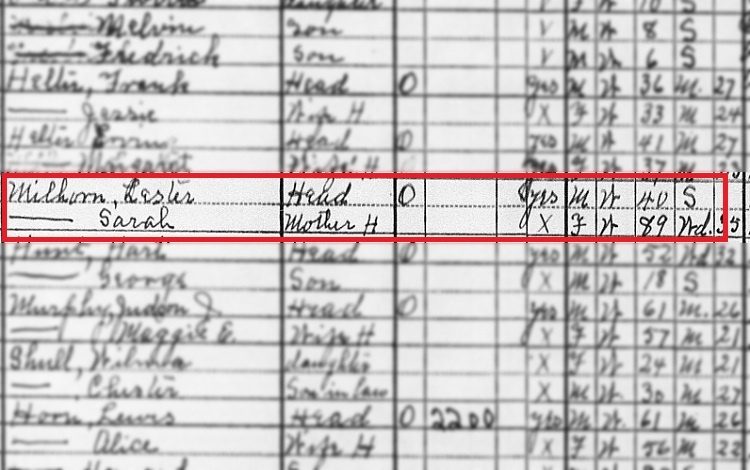 Melvin Son V M W 8 S
Fredrick Son V M W 6 S
Heltir, Frank Head O yes M W 36 M. 27
—— Jessie Wife H X F W 33 M 24
Heltir Head O yes M W 41 M 27
Margaret Wife H F W 37 M
Milhorn, Lester Head O yes M W 40 S
—— Sarah Mother H X F W 89 Wd. 35
Hunt, Head O yes M W 52 Wd 32
—— George Son X M W 18 S
Murphy, Judson J Head O yes M W 61 M. 26
—— Maggie E. Wife H X F W 57 M 21
Shull, Wilma daughter X F W 24 M 21
——, Chester Son in law X M W 30 M 27
Horn, Lewis Head O 2200 yes M W. 61 M 26
—— Alice Wife H X F W 56 M 22